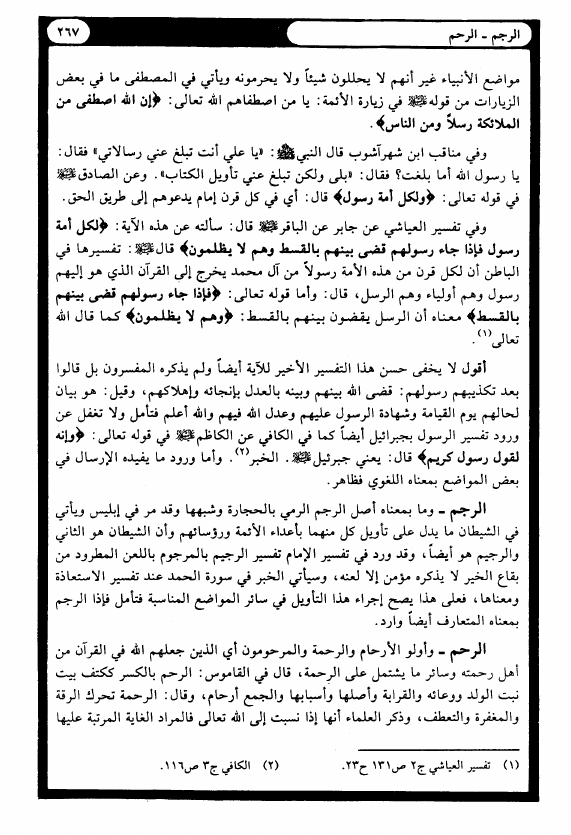 الرجم ـ الرحم
٢٦٧
مواضع الأنبياء غير أنهم لا يحللون شيئاً ولا يحرمونه ويأتي في المصطفى ما في بعض
الزيارات من قوله ﷺ في زيارة الأئمة: يا من اصطفاهم الله تعالى: ﴿إن الله اصطفى من
الملائكة رسلاً ومن الناس﴾.
وفي مناقب ابن شهرآشوب قال النبي ﷺ: «يا علي أنت تبلغ عني رسالاتي» فقال:
يا رسول الله أما بلغت؟ فقال: «بلى ولكن تبلغ عني تأويل الكتاب». وعن الصادق ﷺ
في قوله تعالى: ﴿ولكل أمة رسول﴾ قال: أي في كل قرن إمام يدعوهم إلى طريق الحق.
وفي تفسير العياشي عن جابر عن الباقر ﷺ قال: سألته عن هذه الآية: ﴿لكل أمة
رسول فإذا جاء رسولهم قضى بينهم بالقسط وهم لا يظلمون﴾ قال ﷺ: تفسيرها في
الباطن أن لكل قرن من هذه الأمة رسولاً من آل محمد يخرج إلى القرآن الذي هو إليهم
رسول وهم أولياء وهم الرسل، قال: وأما قوله تعالى: ﴿فإذا جاء رسولهم قضى بينهم
بالقسط﴾ معناه أن الرسل يقضون بينهم بالقسط: ﴿وهم لا يظلمون﴾ كما قال الله
تعالى(١).
أقول لا يخفى حسن هذا التفسير الأخير للآية أيضاً ولم يذكره المفسرون بل قالوا
بعد تكذيبهم رسولهم: قضى الله بينهم وبينه بالعدل بإنجائه وإهلاكهم، وقيل: هو بيان
لحالهم يوم القيامة وشهادة الرسول عليهم وعدل الله فيهم والله أعلم فتأمل ولا تغفل عن
ورود تفسير الرسول بجبرائيل أيضاً كما في الكافي عن الكاظم ﷺ في قوله تعالى: ﴿وإنه
لقول رسول كريم﴾ قال: يعني جبرئيل ﷺ. الخبر(٢). وأما ورود ما يفيده الإرسال في
بعض المواضع بمعناه اللغوي فظاهر.
الرجم ـ وما بمعناه أصل الرجم الرمي بالحجارة وشبهها وقد مر في إبليس ويأتي
في الشيطان ما يدل على تأويل كل منهما بأعداء الأئمة ورؤسائهم وأن الشيطان هو الثاني
والرجيم هو أيضاً، وقد ورد في تفسير الإمام تفسير الرجيم بالمرجوم باللعن المطرود من
بقاع الخير لا يذكره مؤمن إلا لعنه، وسيأتي الخبر في سورة الحمد عند تفسير الاستعاذة
ومعناها، فعلى هذا يصح إجراء هذا التأويل في سائر المواضع المناسبة فتأمل فإذا الرجم
بمعناه المتعارف أيضاً وارد.
الرحم ـ وأولو الأرحام والرحمة والمرحومون أي الذين جعلهم الله في القرآن من
أهل رحمته وسائر ما يشتمل على الرحمة، قال في القاموس: الرحم بالكسر ككتف بيت
نبت الولد ووعائه والقرابة وأصلها وأسبابها والجمع أرحام، وقال: الرحمة تحرك الرقة
والمغفرة والتعطف، وذكر العلماء أنها إذا نسبت إلى الله تعالى فالمراد الغاية المرتبة عليها
(١) تفسير العياشي ج٢ ص١٣١ ح٢٣.
(٢) الكافي ج٣ ص١١٦.